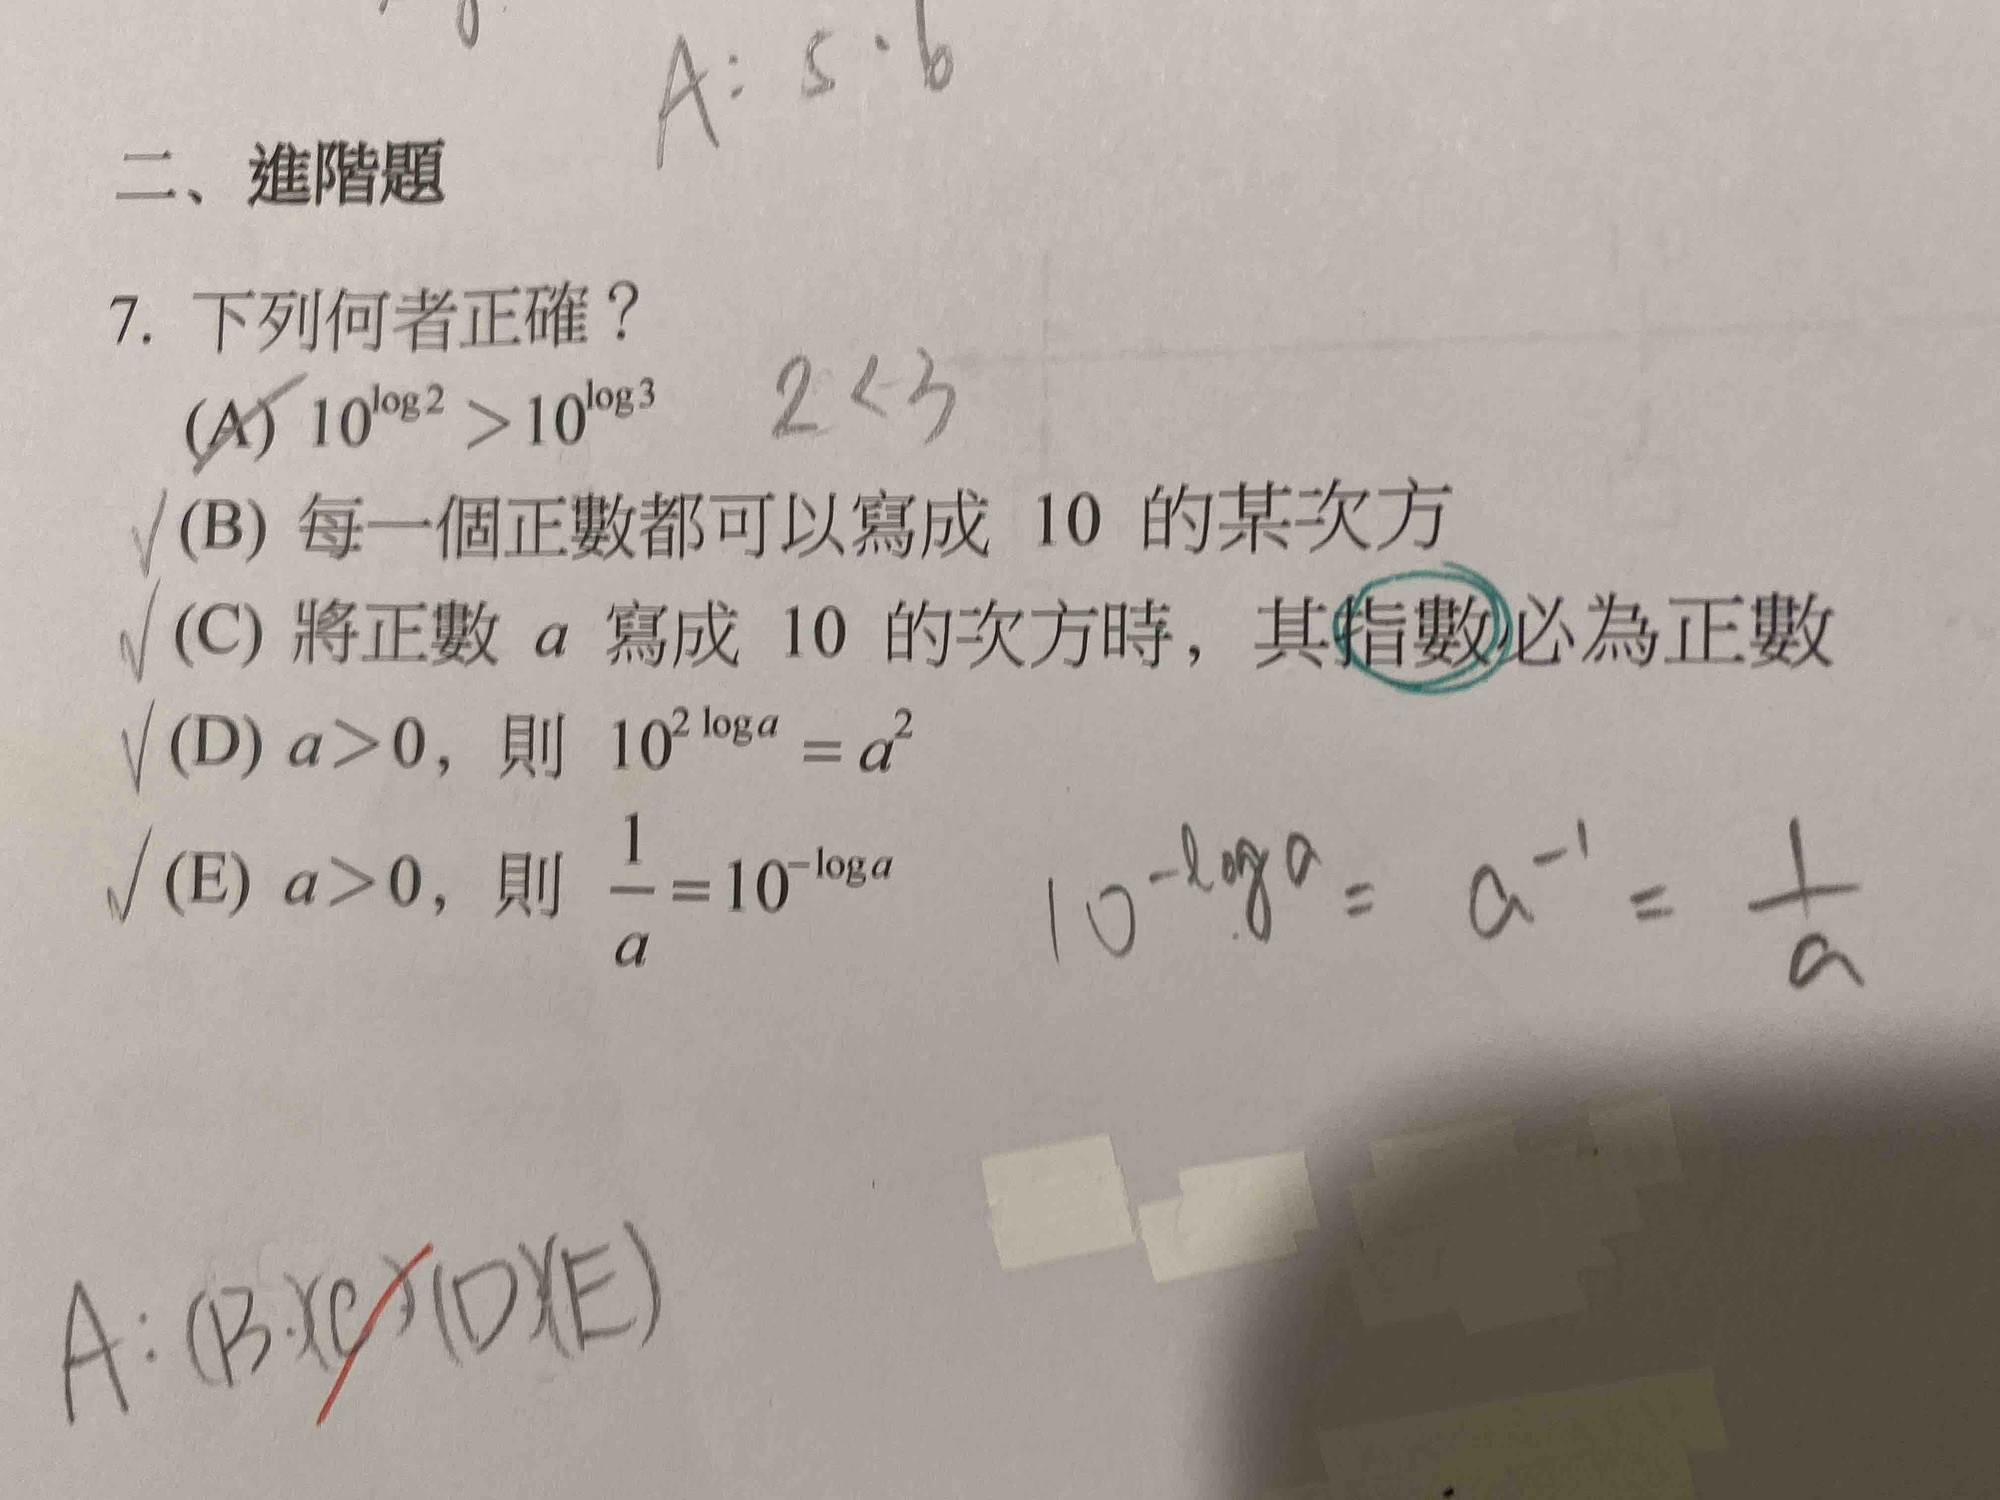 A: 5.6
二、進階題
7. 下列何者正確？
(A) 10^{log 2} > 10^{log 3} 2 < 3
✓ (B) 每一個正數都可以寫成 10 的某次方
✓ (C) 將正數 a 寫成 10 的次方時，其指數必為正數
✓ (D) a > 0，則 10^{2 log a} = a^2
✓ (E) a > 0，則 1/a = 10^{-log a} 10^{-log a} = a^{-1} = 1/a
A: (B)(C)(D)(E)